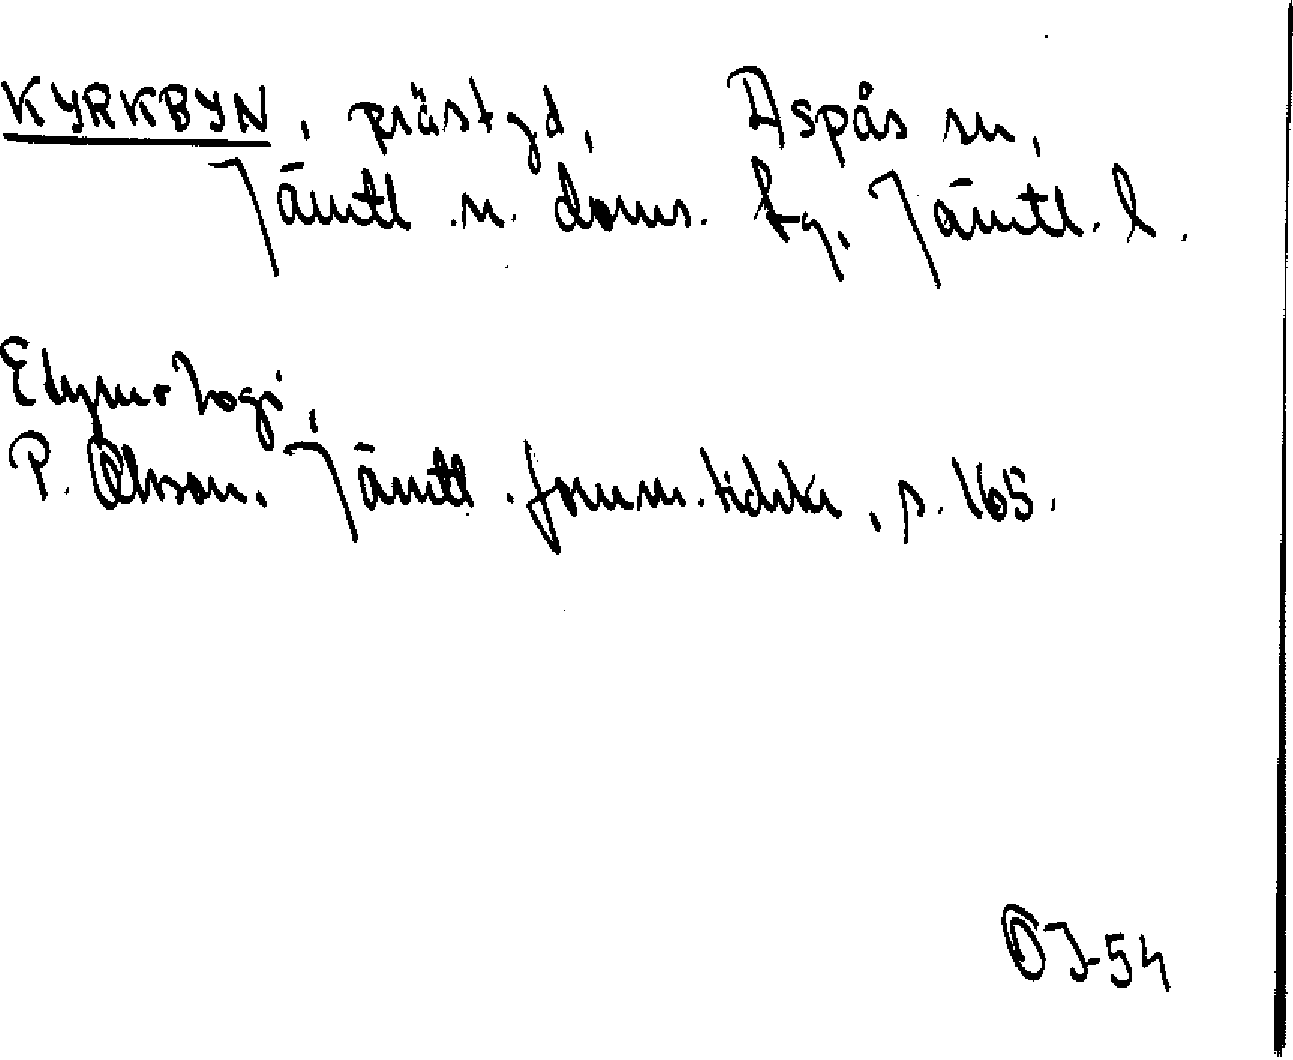 KYRKBYN, prästgd, Aspås sn,
Jämtl. n. doms. tg, Jämtl. l.
Etymologi,
P. Olsson. Jämtl. fornm. tidskr, s. 165.
OJ-54